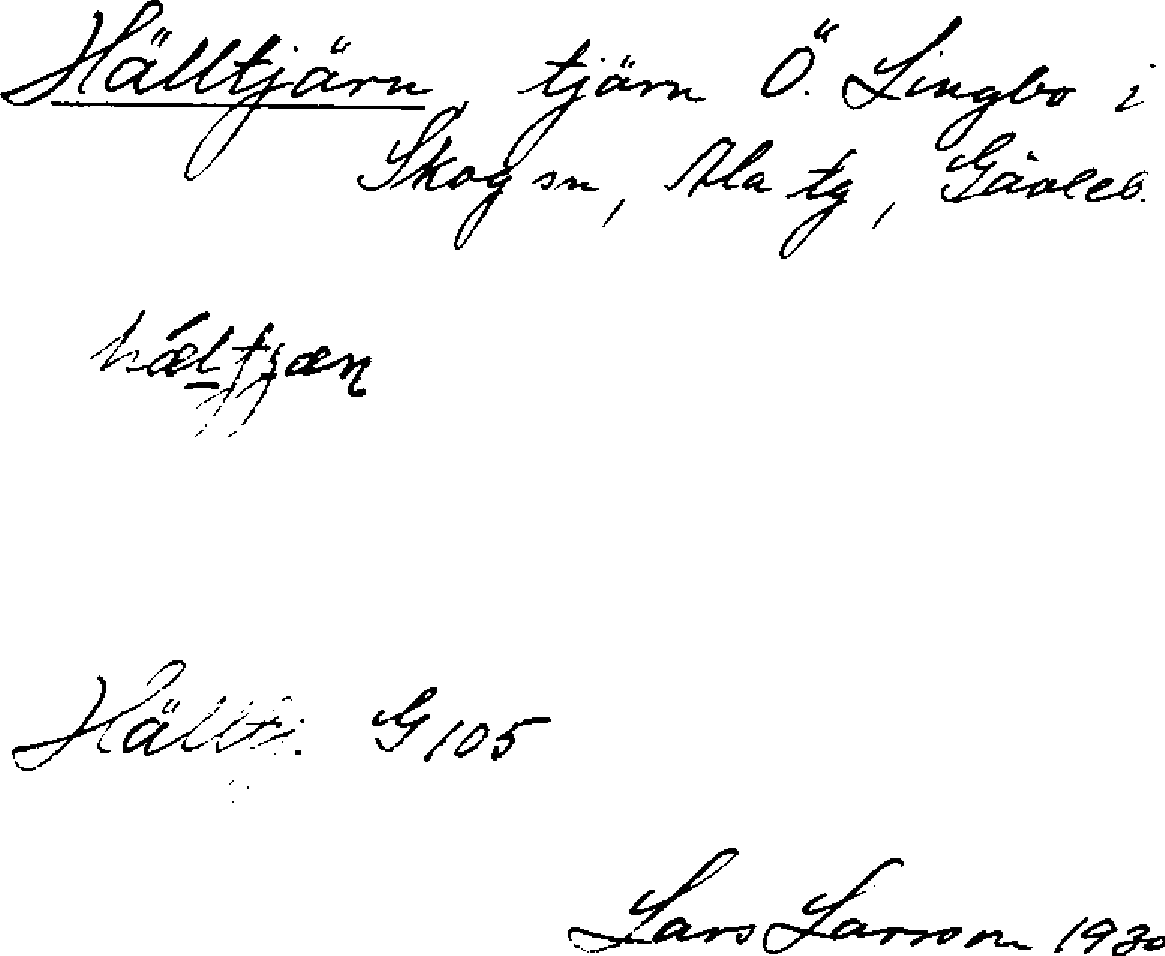 Hälltjärn, tjärn Ö. Lingbo i
Skog sn, Ala tg, Gävleb.
Hälltj. G 105
Lars Larsson 1930